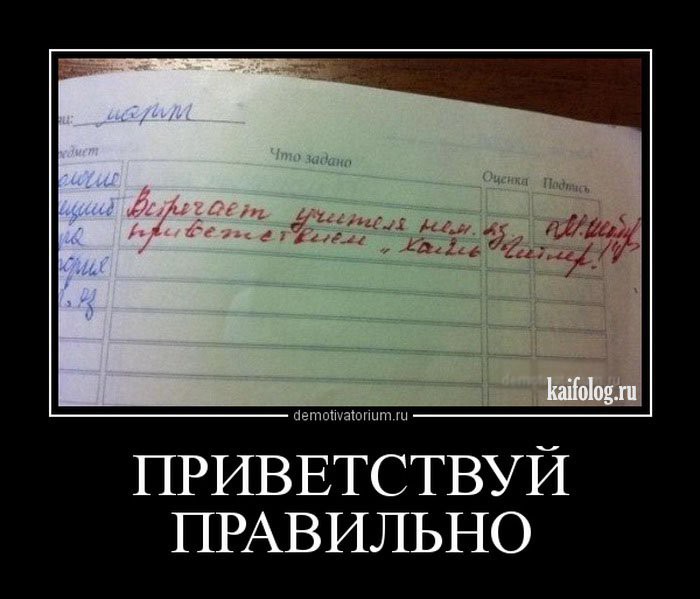 март
Что задано
Оценка
Подпись
Встречает учителя нем. яз.
приветствием „Хайль Гитлер!"
kaifolog.ru
demotivatorium.ru
ПРИВЕТСТВУЙ
ПРАВИЛЬНО